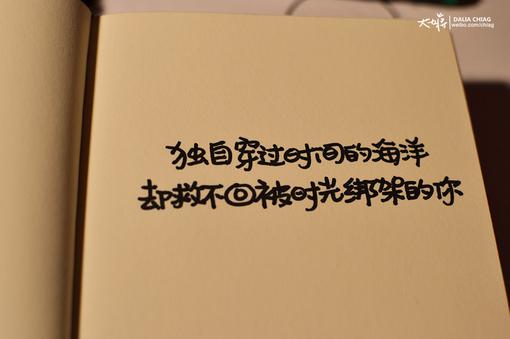 DALIA CHIAG
weibo.com/chiag
独自穿过时间的海洋
却救不回被时光绑架的你